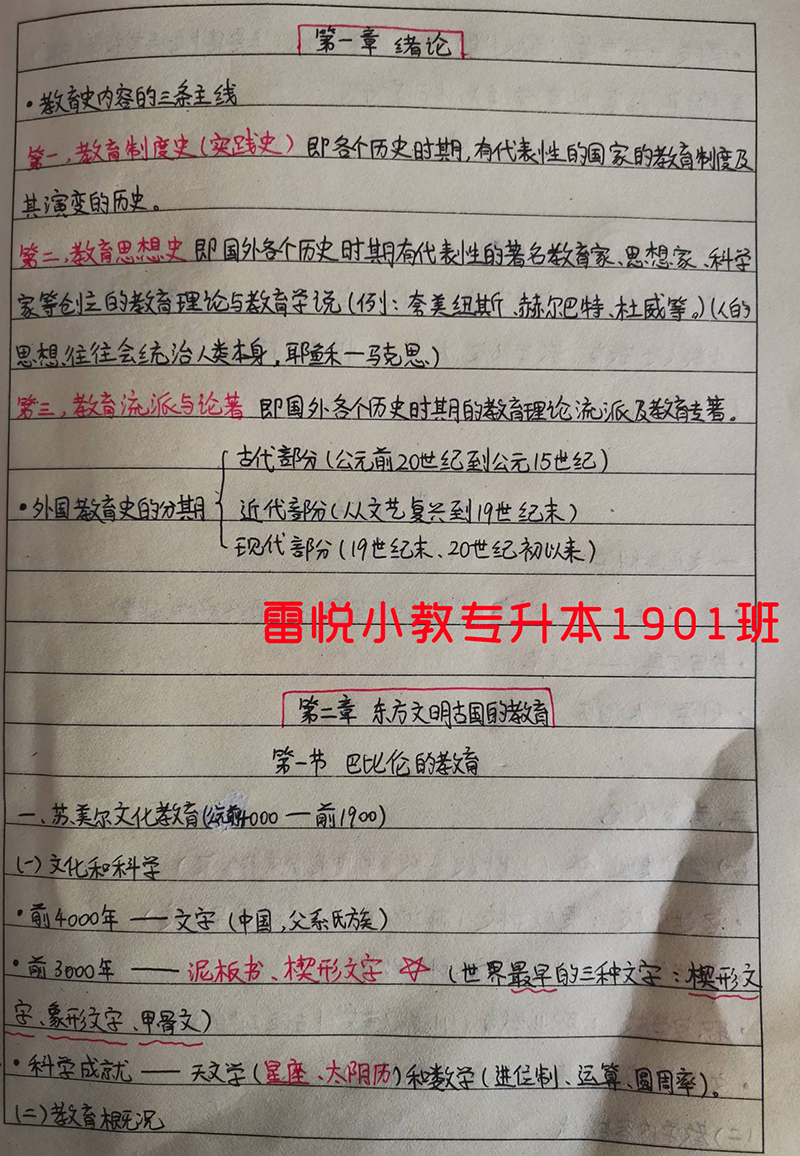 第一章 绪论
·教育史内容的三条主线
第一,教育制度史(实践史) 即各个历史时期,有代表性的国家的教育制度及
其演变的历史。
第二,教育思想史 即国外各个历史时期有代表性的著名教育家、思想家、科学
家等创立的教育理论与教育学说(例:夸美纽斯、赫尔巴特、杜威等。)(人的
思想,往往会统治人类本身,耶稣—马克思)
第三,教育流派与论著 即国外各个历史时期的教育理论流派及教育专著。
古代部分(公元前20世纪到公元15世纪)
·外国教育史的分期
近代部分(从文艺复兴到19世纪末)
现代部分(19世纪末、20世纪初以来)
雷悦小教专升本1901班
第二章 东方文明古国的教育
第一节 巴比伦的教育
一、苏美尔文化教育(公元前4000—前1900)
(一)文化和科学
·前4000年——文字(中国,父系氏族)
·前3000年——泥板书、楔形文字☆(世界最早的三种文字:楔形文
字、象形文字、甲骨文)
·科学成就——天文学(星座、太阴历)和数学(进位制、运算、圆周率)。
(二)教育概况